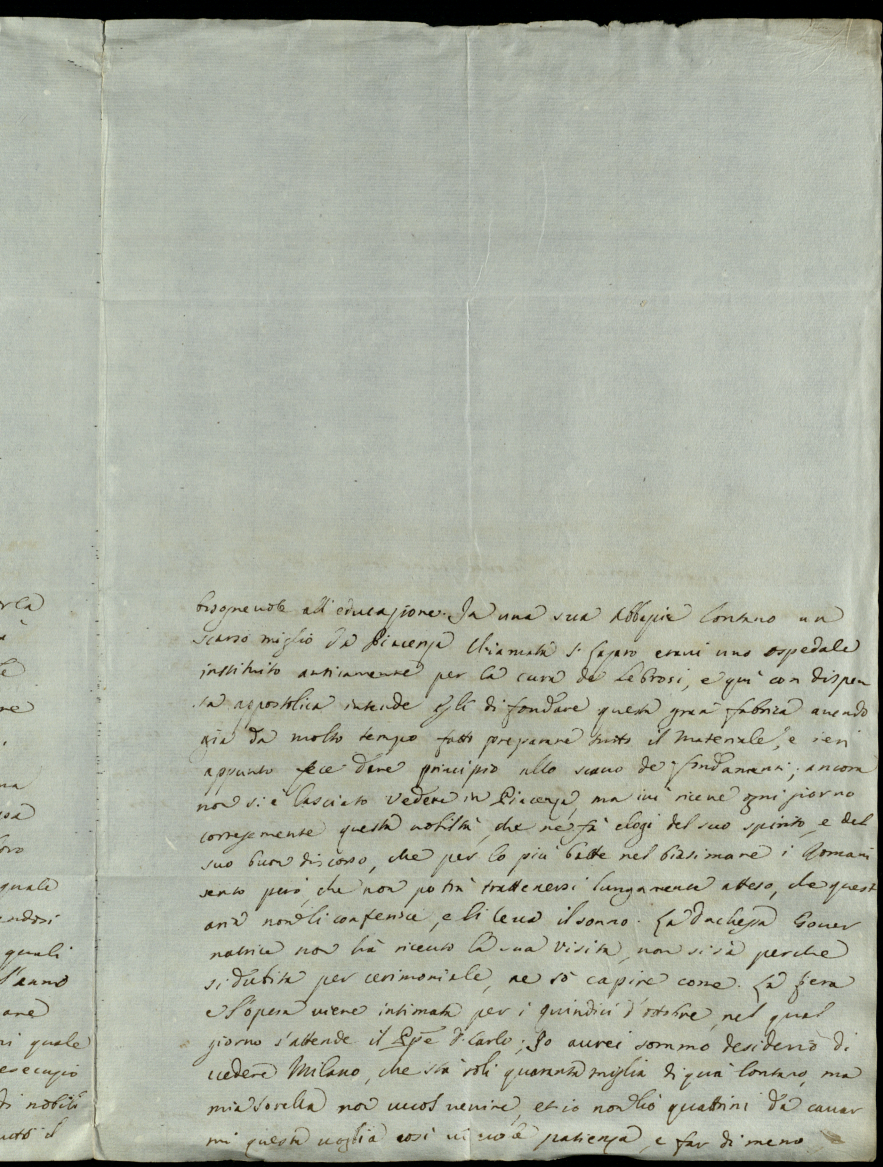 rla
le
re
na
loro
quale
endosi
quali
l'anno
ane
ni quale
esecuzio
di nobili
uto il
bisognevole all'educazione. In una sua Abbazia lontano un
scarso miglio da Piacenza chiamata S. Lazaro eravi uno ospedale
instituito anticamente per la cura de Lebrosi, e qui con dispen
sa appostolica intende egli di fondare questa gran fabrica avendo
gia da molto tempo fatto preparare tutto il materiale, e ieri
appunto fece dare principio allo scavo de fondamenti; ancora
non si è lasciato vedere in Piacenza, ma ivi riceve ogni giorno
corresemente questa nobiltà, che ne fà elogi del suo spirito, e del
suo buon discorso, che per lo più batte nel biasimare i Romani
sento però, che non potrà trattenersi lungamente atteso, che quest
aria non li conferisce, e li leva il sonno. La Duchessa Gover
natrice non hà riceuto la sua visita, non si sà perche
si dubita per cerimoniale, ne sò capire come. La fiera
e l'opera viene intimata per i quindici d'ottobre, nel qual
giorno s'attende il Ppe D. Carlo; Io aurei sommo desiderio di
vedere Milano, che stà soli quaranta miglia di quà lontano, ma
mia sorella non vuol venire, et io non hò quattrini da cavar
mi questa voglia così ci vuole patienza, e far di meno